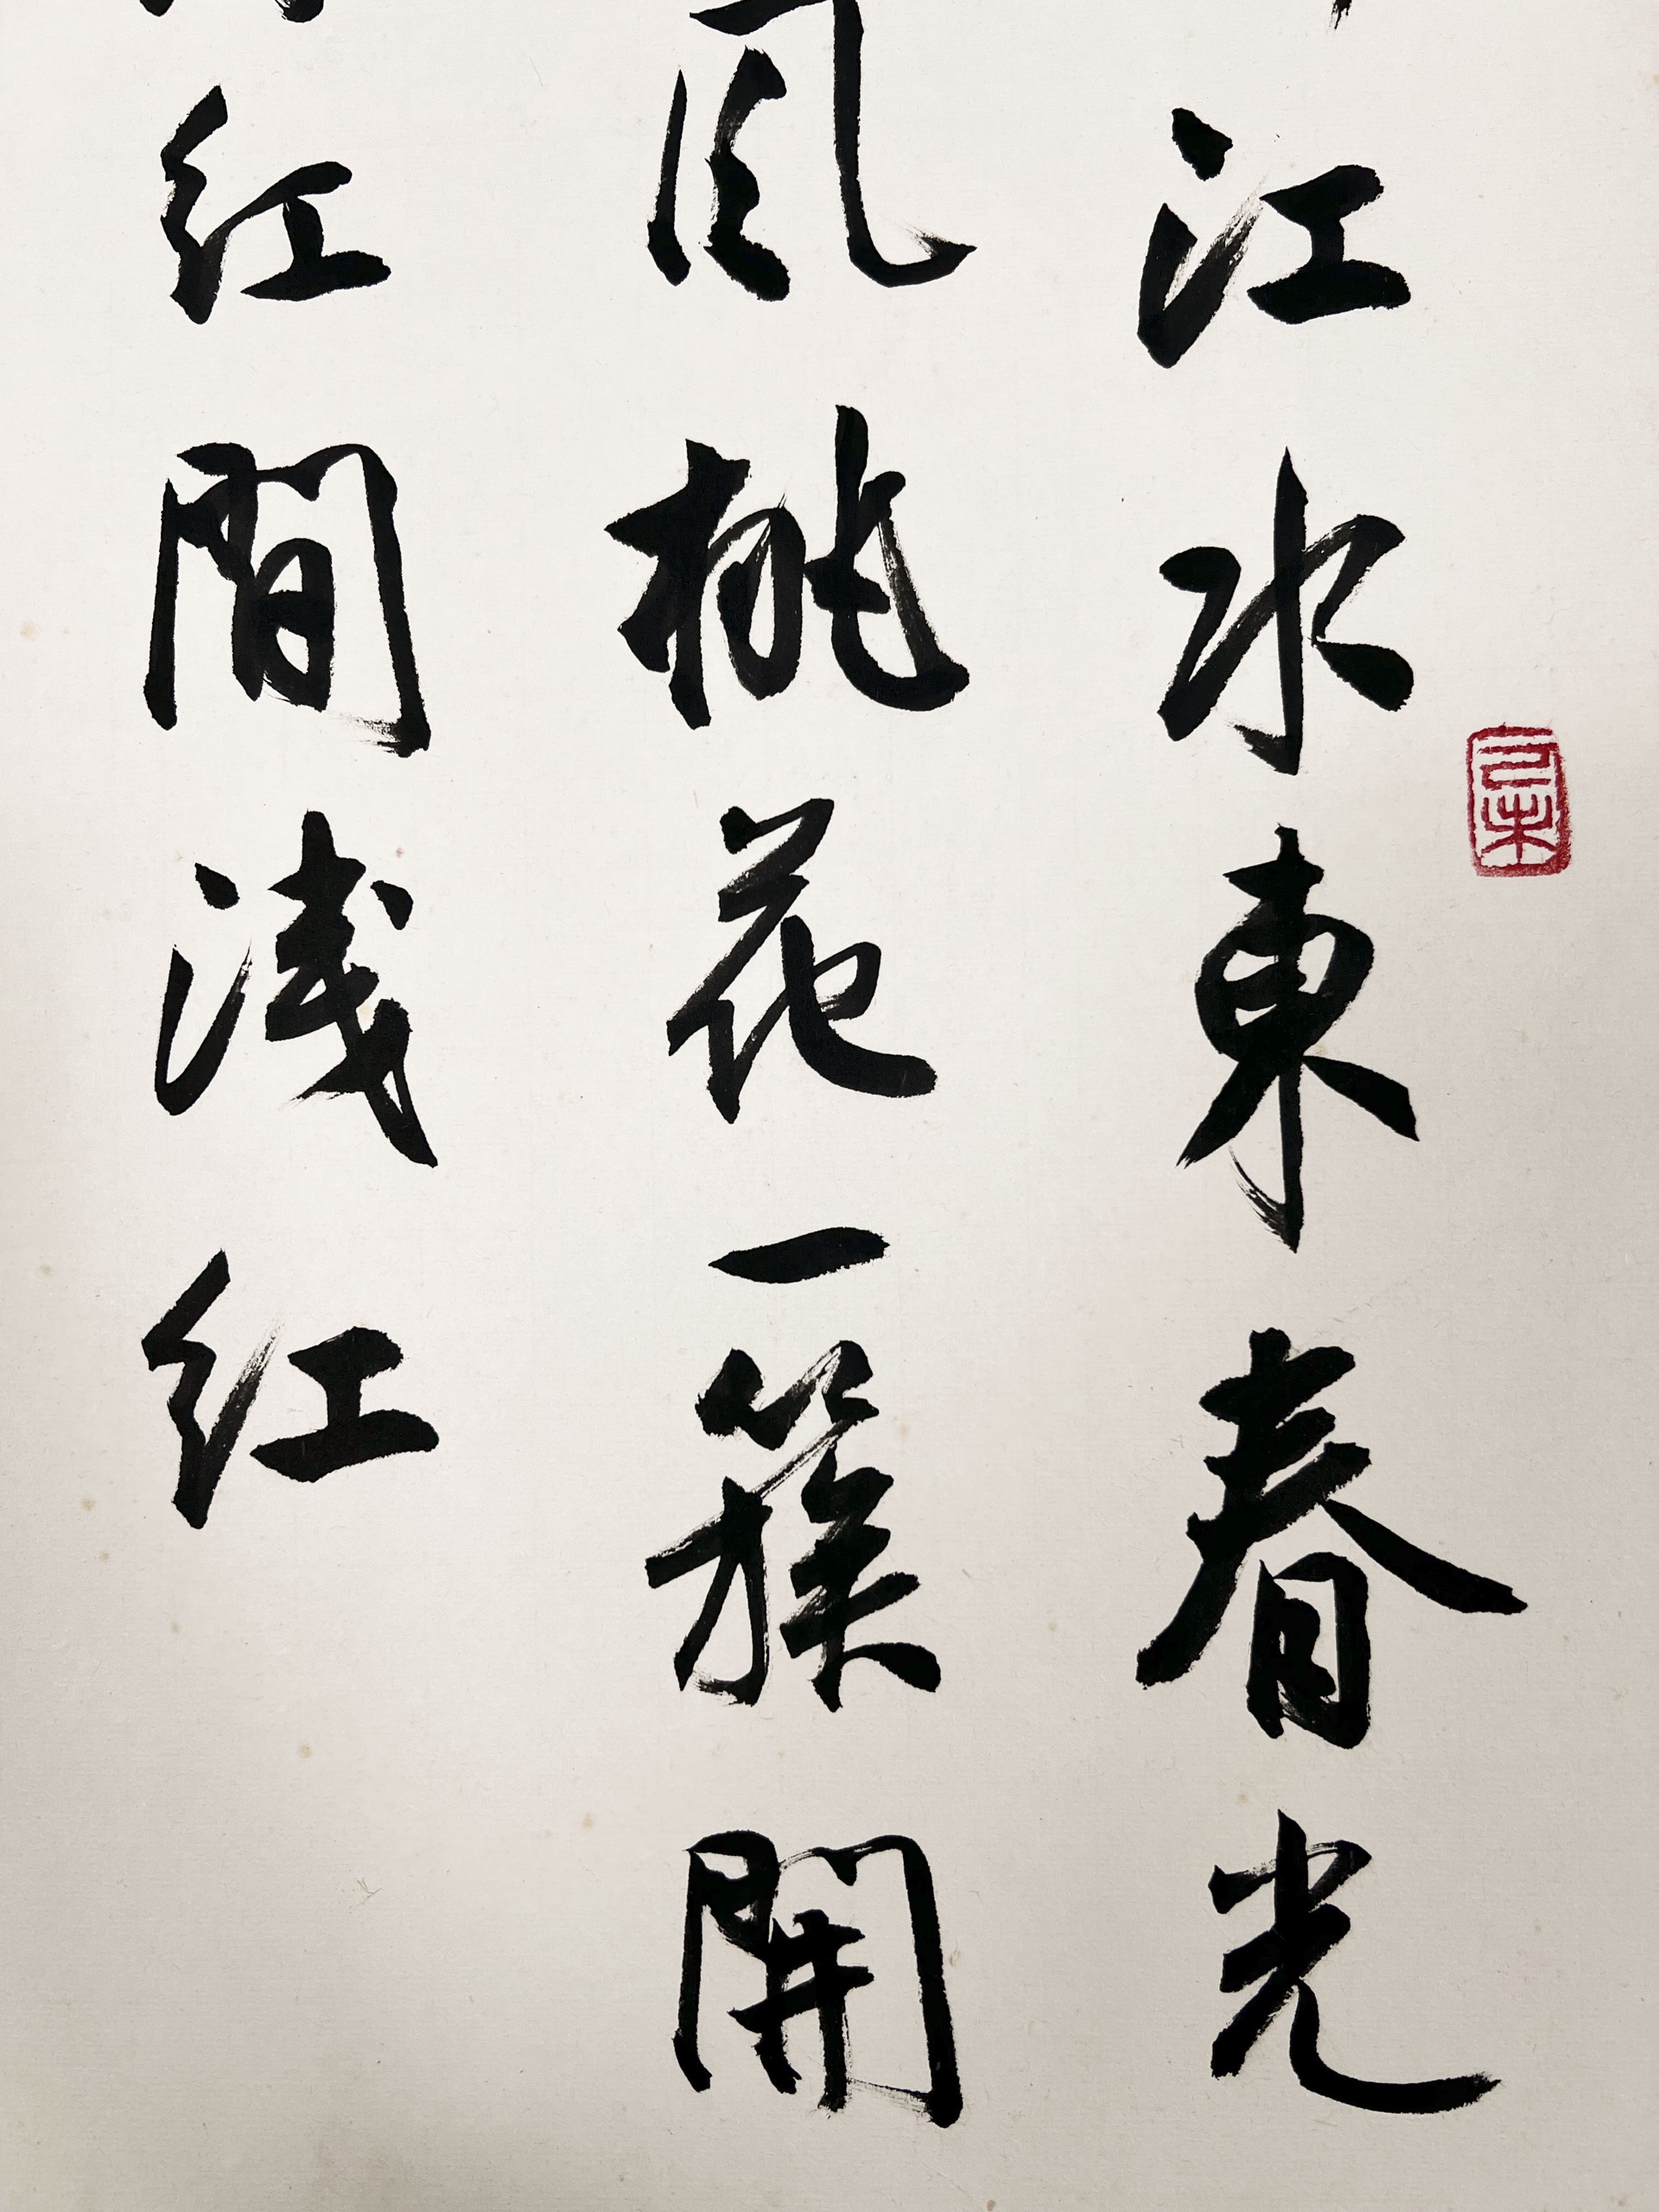 江水東春光
風桃花一簇開
红間淺红
己未